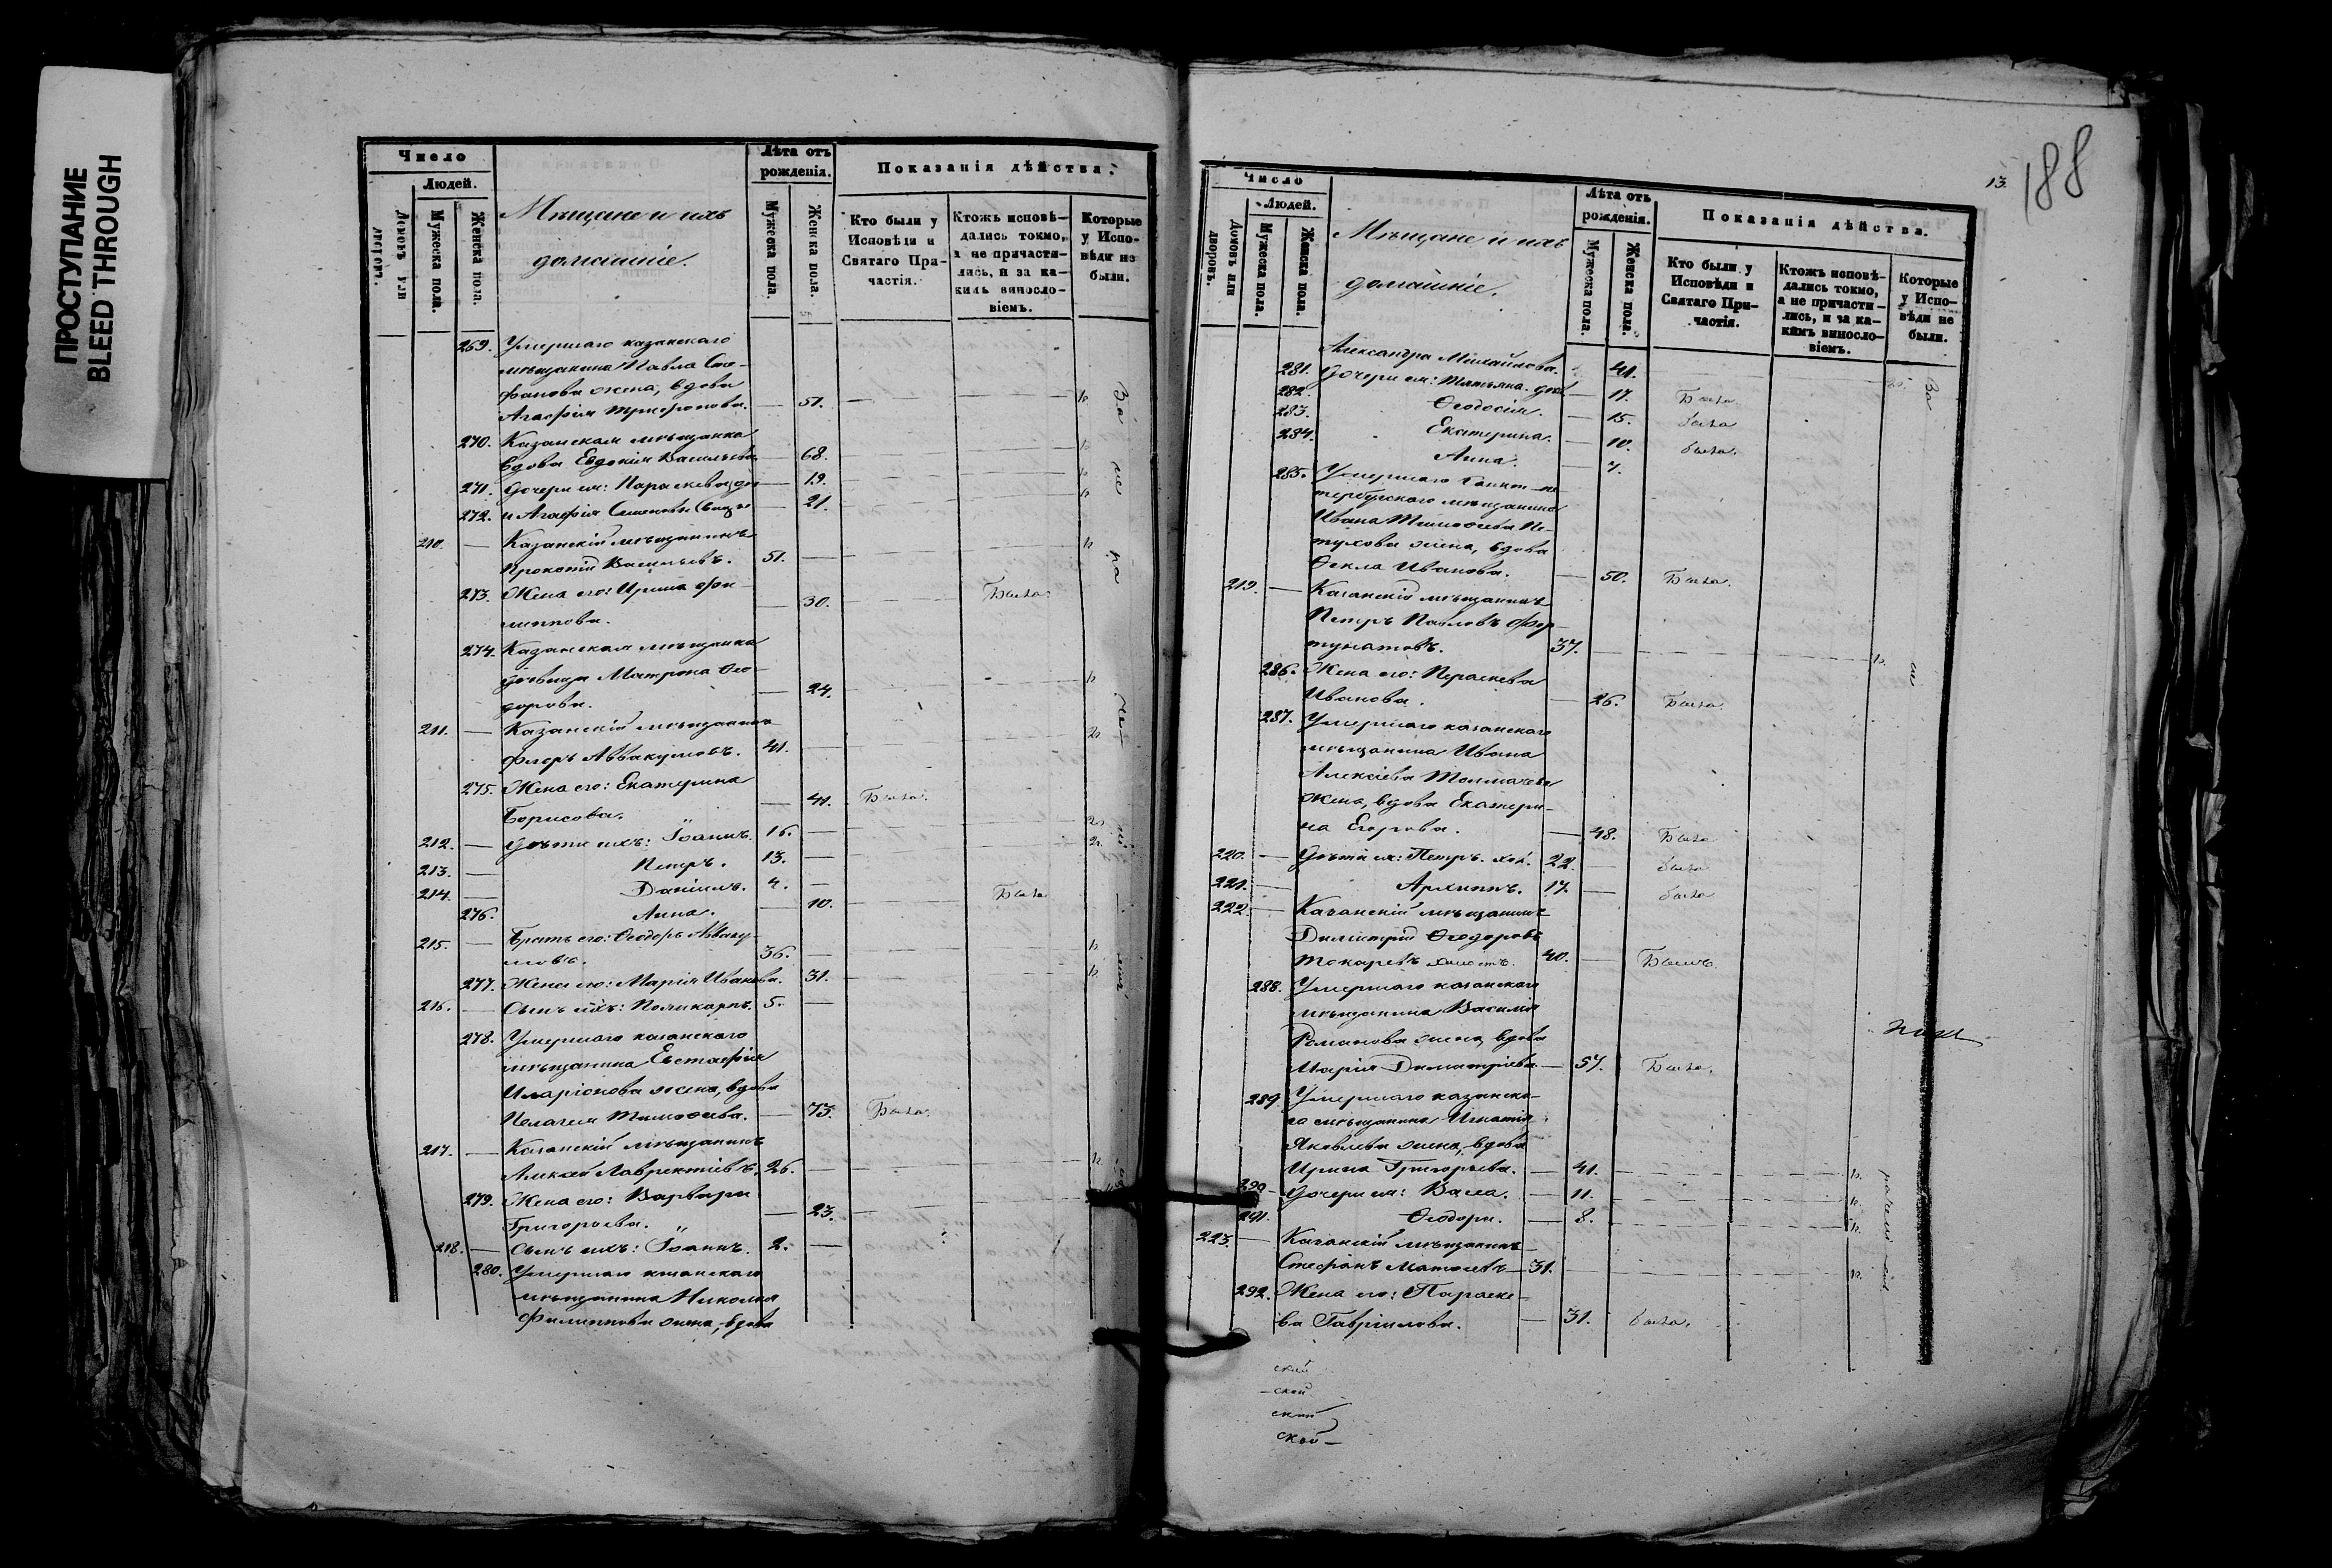 ПРОСТУПАНИЕ
BLEED THROUGH
Число
Людей.
Домовъ или дворовъ.
Мужеска пола.
Женска пола.
Мѣщане и ихъ
домашніе.
Лѣта отъ рожденія.
Мужеска пола.
Женска пола.
Показанія дѣйства.
Кто были у Исповѣди и Святаго Причастія.
Ктожъ исповѣдались токмо, а не причастились, и за какимъ винословіемъ.
Которые у Исповѣди не были.
269. Умершаго казанскаго
мѣщанина Павла Сте-
фанова жена, вдова
Агаѳія Трифонова. — 51.
270. Казанская мѣщанка
вдова Евдокія Васильева — 68.
271. Дочери ея: Параскева — 19.
272. и Агаѳія — 21.
210. — Казанскій мѣщанинъ
Прокопій Васильевъ. 51. —
273. Жена его: Ирина Фи-
липпова. — 30. Была.
274. Казанская мѣщанка
дѣвица Матрона Ѳео-
дорова. — 24.
211. — Казанскій мѣщанинъ
Флоръ Аввакумовъ. 41. —
275. Жена его: Екатерина
Борисова. — 41. Была.
212. — Дѣти ихъ: Іоаннъ. 16. —
213. — Петръ. 13. —
214. — Даніилъ. 4. —
276. Анна. — 10.
215. — Братъ его: Ѳеодоръ Авваку-
мовъ. 36. —
277. Жена его: Марія Иванова. 31.
216. — Сынъ ихъ: Поликарпъ. 5. —
278. Умершаго казанскаго
мѣщанина Евстафія
Иларіонова жена, вдова
Пелагея Тимоѳеева. — 73. Была.
217. — Казанскій мѣщанинъ
Алексѣй Лаврентіевъ. 26. —
279. Жена его: Варвара
Григорьева. — 23.
218. — Сынъ ихъ: Іоаннъ. 2. —
280. Умершаго казанскаго
мѣщанина Николая
Филиппова жена, вдова
13.
188
Число
Людей.
Домовъ или дворовъ.
Мужеска пола.
Женска пола.
Мѣщане и ихъ
домашніе.
Лѣта отъ рожденія.
Мужеска пола.
Женска пола.
Показанія дѣйства.
Кто были у Исповѣди и Святаго Причастія.
Ктожъ исповѣдались токмо, а не причастились, и за какимъ винословіемъ.
Которые у Исповѣди не были.
Александра Михайлова. 41.
281. Дочери ея: Татьяна. — 17. Была.
282. Ѳеодосія. — 15. Была
283. Екатерина. — 10. была.
284. Анна. — 7.
285. Умершаго Санкт-пе
тербургскаго мѣщанина
Ивана Тимоѳеева Пе-
тухова жена, вдова
Ѳекла Иванова. — 50. Была.
219. — Казанскій мѣщанинъ
Петръ Павловъ Фор-
тунатовъ. 37. —
286. Жена его: Параскева
Иванова. — 26. Была.
287. Умершаго казанскаго
мѣщанина Ивана
Алексіева Толмачева
жена, вдова Екатери-
на Егорова. — 48. Была
220. — Дѣти ея: Петръ. хол. 22. — была
221. — Архиппъ. 17. — была
222. — Казанскій мѣщанинъ
Димитрій Ѳеодоровъ
Токаревъ холостъ. 40. — Былъ.
288. Умершаго казанскаго
мѣщанина Василія
Романова жена, вдова
Марія Димитріева — 57. Была.
289. Умершаго казанска-
го мѣщанина Игнатія
Яковлева жена, вдова
Ирина Григорьева. — 41.
290. Дочери ея: Васса. — 11.
291. Ѳеодора. — 8.
223. — Казанскій мѣщанинъ
Стефанъ Матѳеевъ 31.
292. Жена его: Параске-
ва Гавріилова. — 31. была.
ской
ской
ской
ской